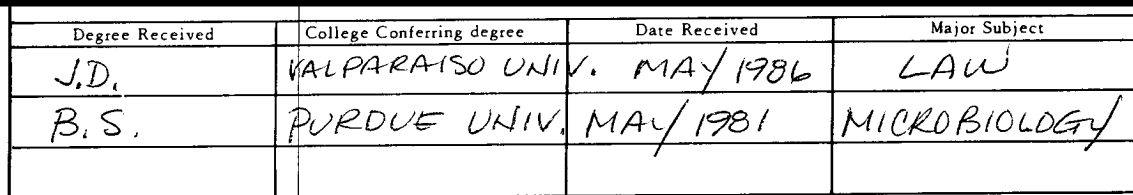 Degree Received College Conferring degree Date Received Major Subject
J.D. VALPARAISO UNIV. MAY 1986 LAW
B.S. PURDUE UNIV. MAY 1981 MICROBIOLOGY